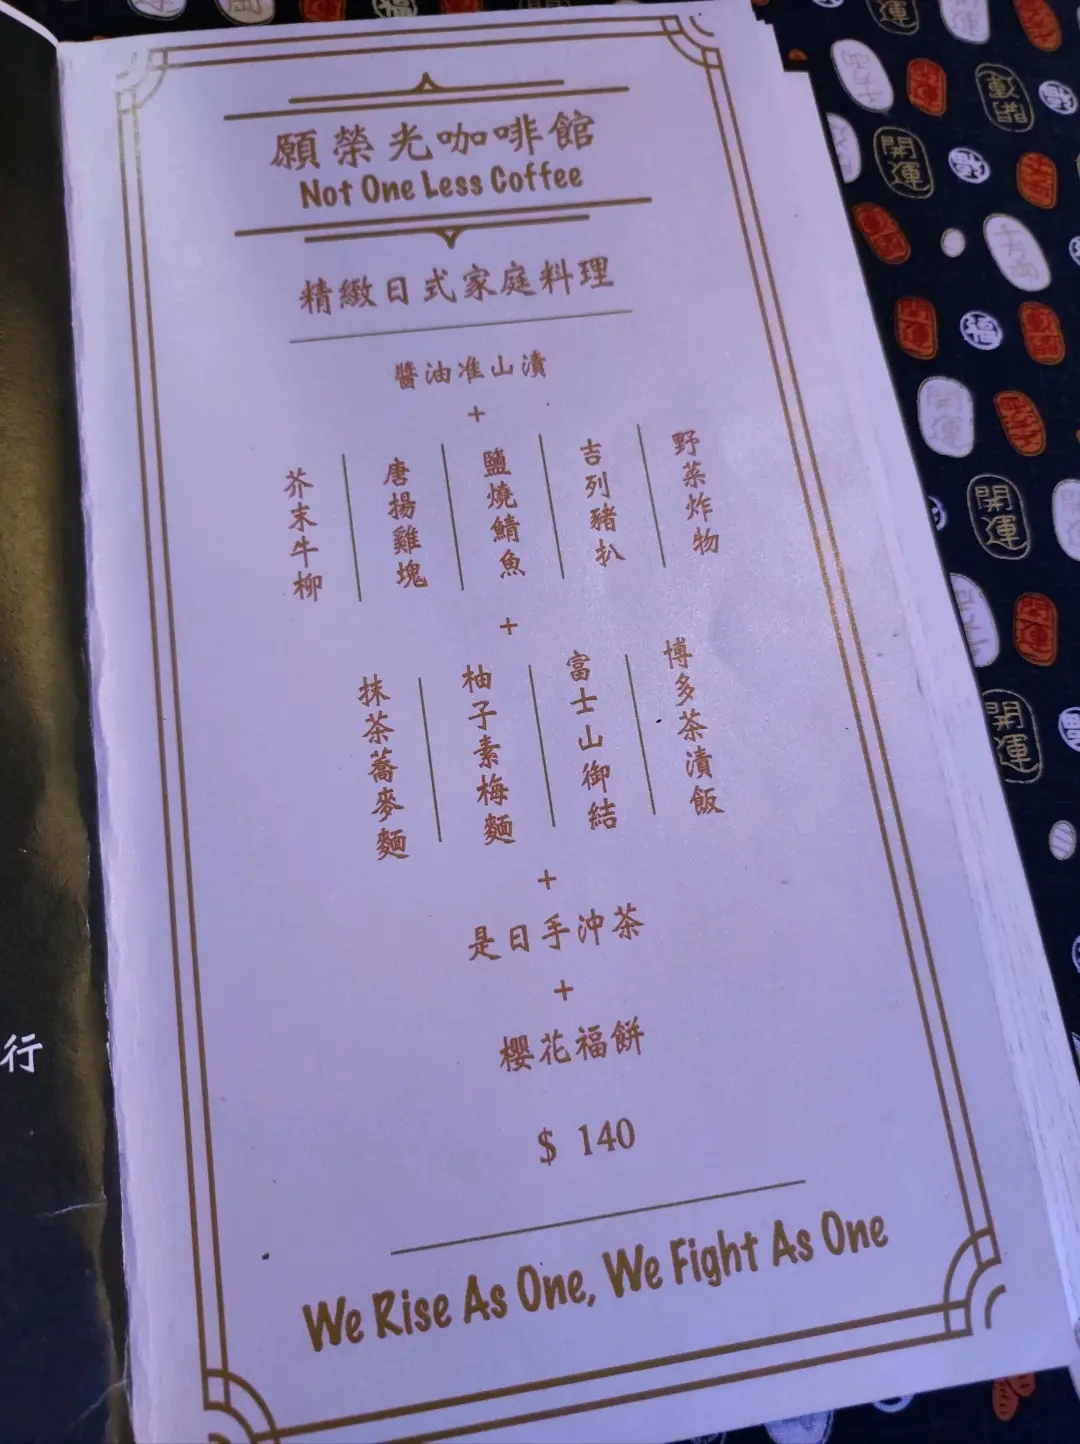 願榮光咖啡館
Not One Less Coffee
精緻日式家庭料理
醬油准山漬
+
野菜炸物
吉列豬扒
鹽燒鯖魚
唐揚雞塊
芥末牛柳
+
博多茶漬飯
富士山御結
柚子素梅麵
抹茶蕎麥麵
+
是日手沖茶
+
櫻花福餅
$ 140
We Rise As One, We Fight As One
行
開運
開運
福
開運
開運
開運